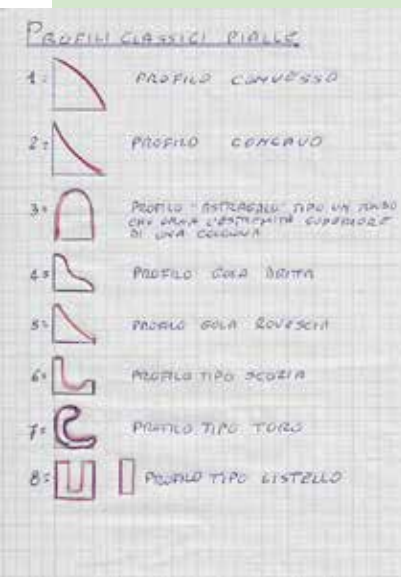 PROFILI CLASSICI PIALLE
1= PROFILO CONVESSO
2= PROFILO CONCAVO
3= PROFILO "ASTRAGALO" TIPO UN TONDO
CHE ORNA L'ESTREMITÀ SUPERIORE
DI UNA COLONNA
4= PROFILO GOLA DRITTA
5= PROFILO GOLA ROVESCIA
6= PROFILO TIPO SCOZIA
7= PROFILO TIPO TORO
8= PROFILO TIPO LISTELLO